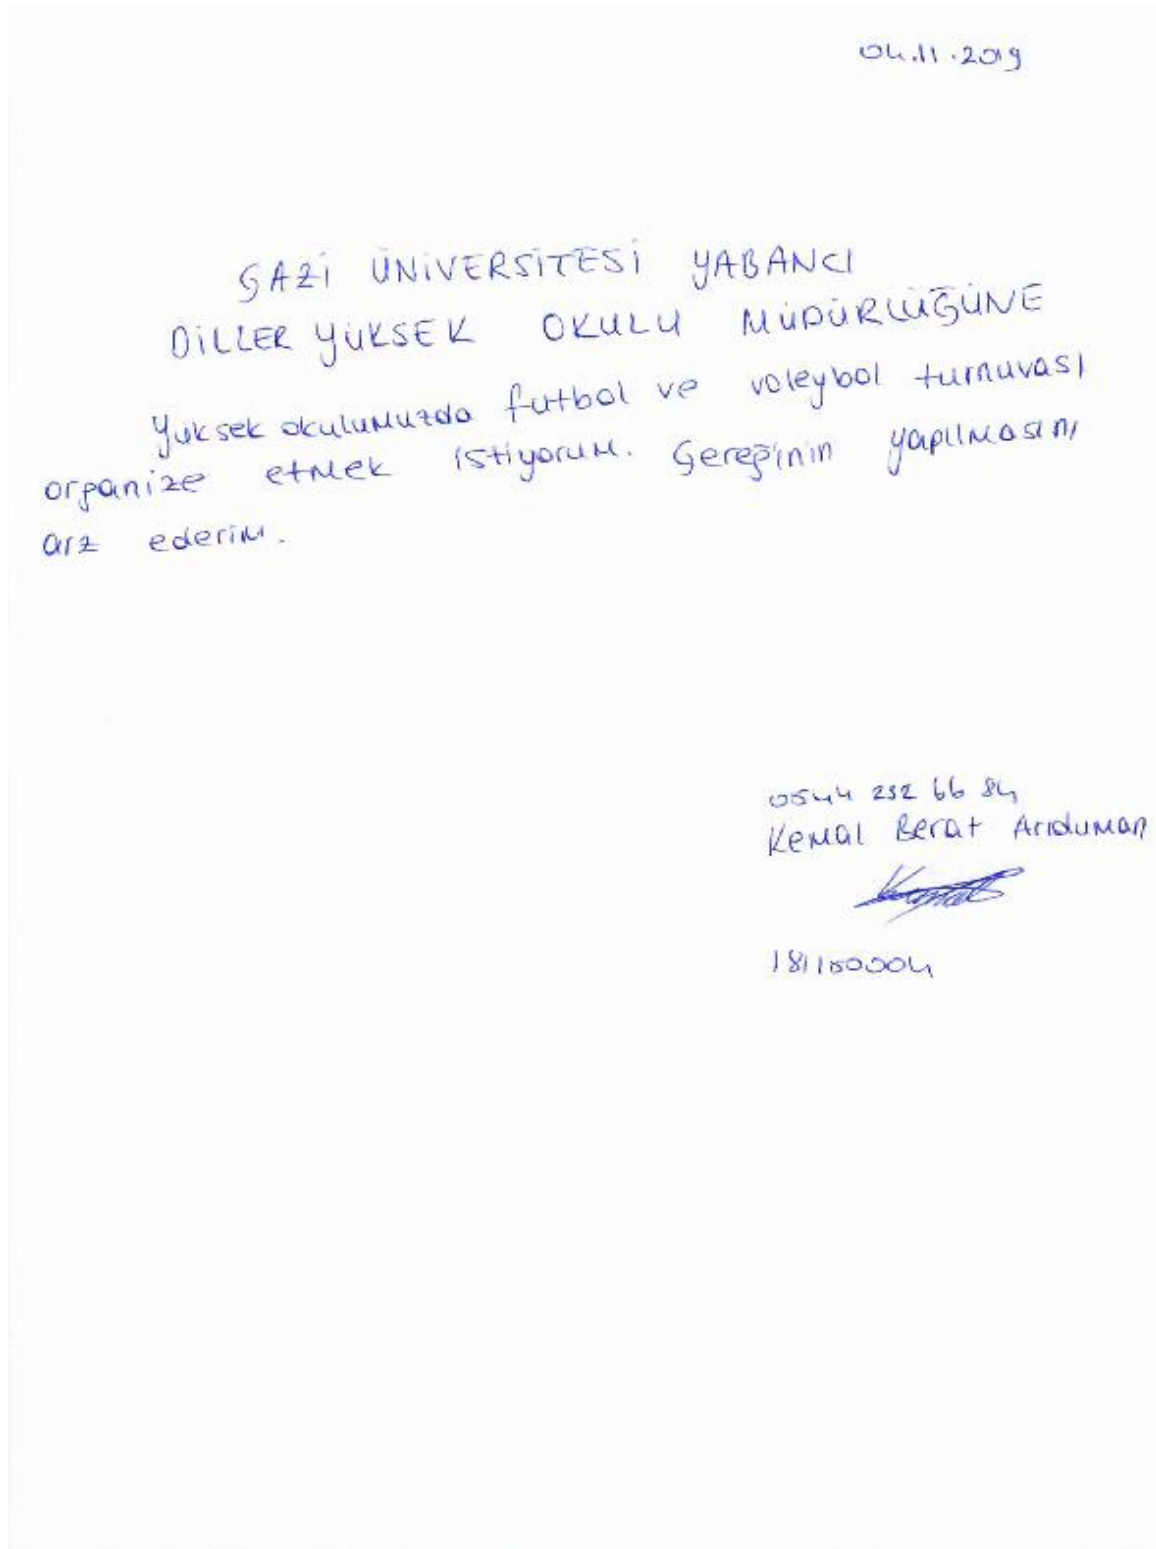 04.11.2019
GAZİ ÜNİVERSİTESİ YABANCI
DİLLER YÜKSEK OKULU MÜDÜRLÜĞÜNE
Yüksek okulumuzda futbol ve voleybol turnuvası
organize etmek istiyorum. Gereğinin yapılmasını
arz ederim.
0544 232 66 84
Kemal Berat Arıduman
Kemal